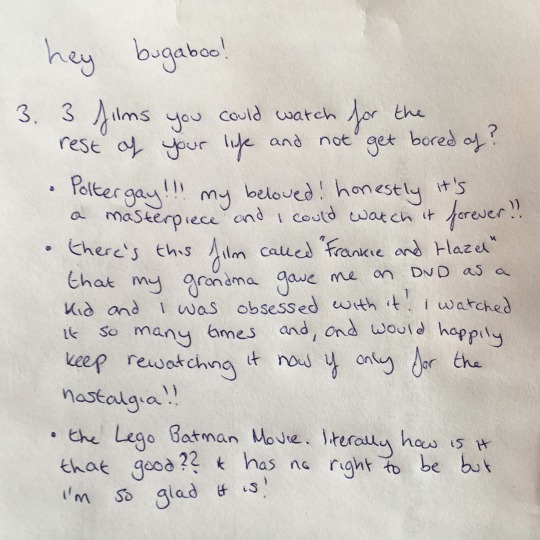 hey bugaboo!
3. 3 films you could watch for the
rest of your life and not get bored of?
• Poltergay!!! my beloved! honestly it's
a masterpiece and i could watch it forever!!
• there's this film called "Frankie and Hazel"
that my grandma gave me on DVD as a
kid and i was obsessed with it! i watched
it so many times and, and would happily
keep rewatching it now if only for the
nostalgia!!
• the Lego Batman Movie. literally how is it
that good?? it has no right to be but
i'm so glad it is!